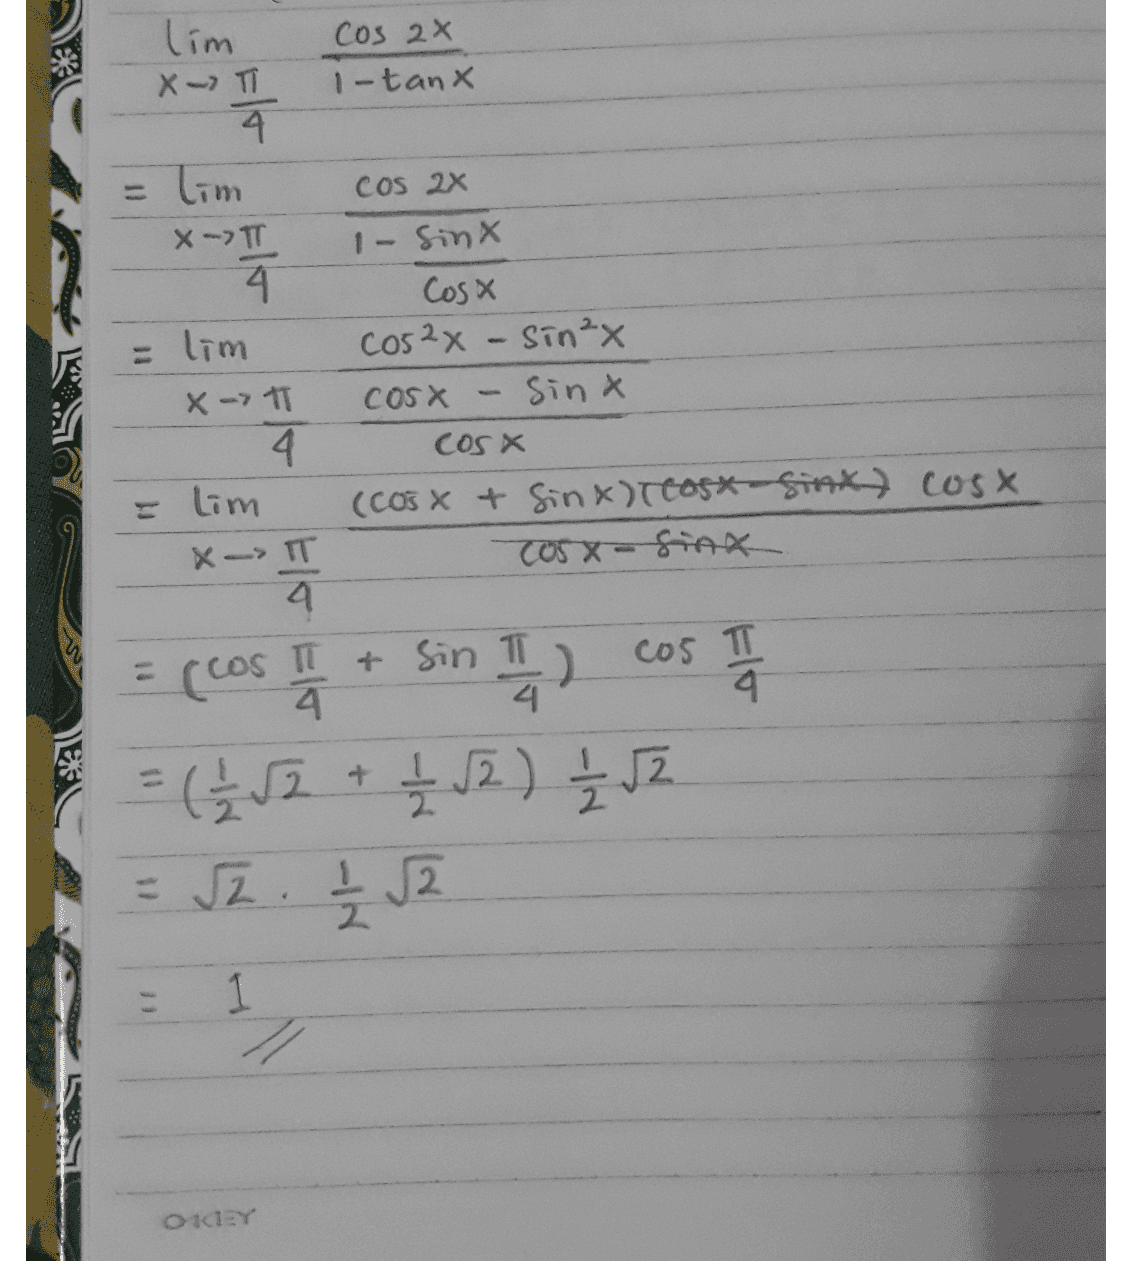 lim cos 2x
x→π/4 1-tanx
= lim cos 2x
x→π/4 1- sinx/cosx
= lim cos²x - sin²x
x→π/4 cosx - sin x
cosx
= lim (cosx + sinx)(cosx-sinx) cosx
x→π/4 cosx-sinx
= (cos π/4 + sin π/4) cos π/4
= (1/2 √2 + 1/2 √2) 1/2 √2
= √2 . 1/2 √2
= 1 //
OKEY